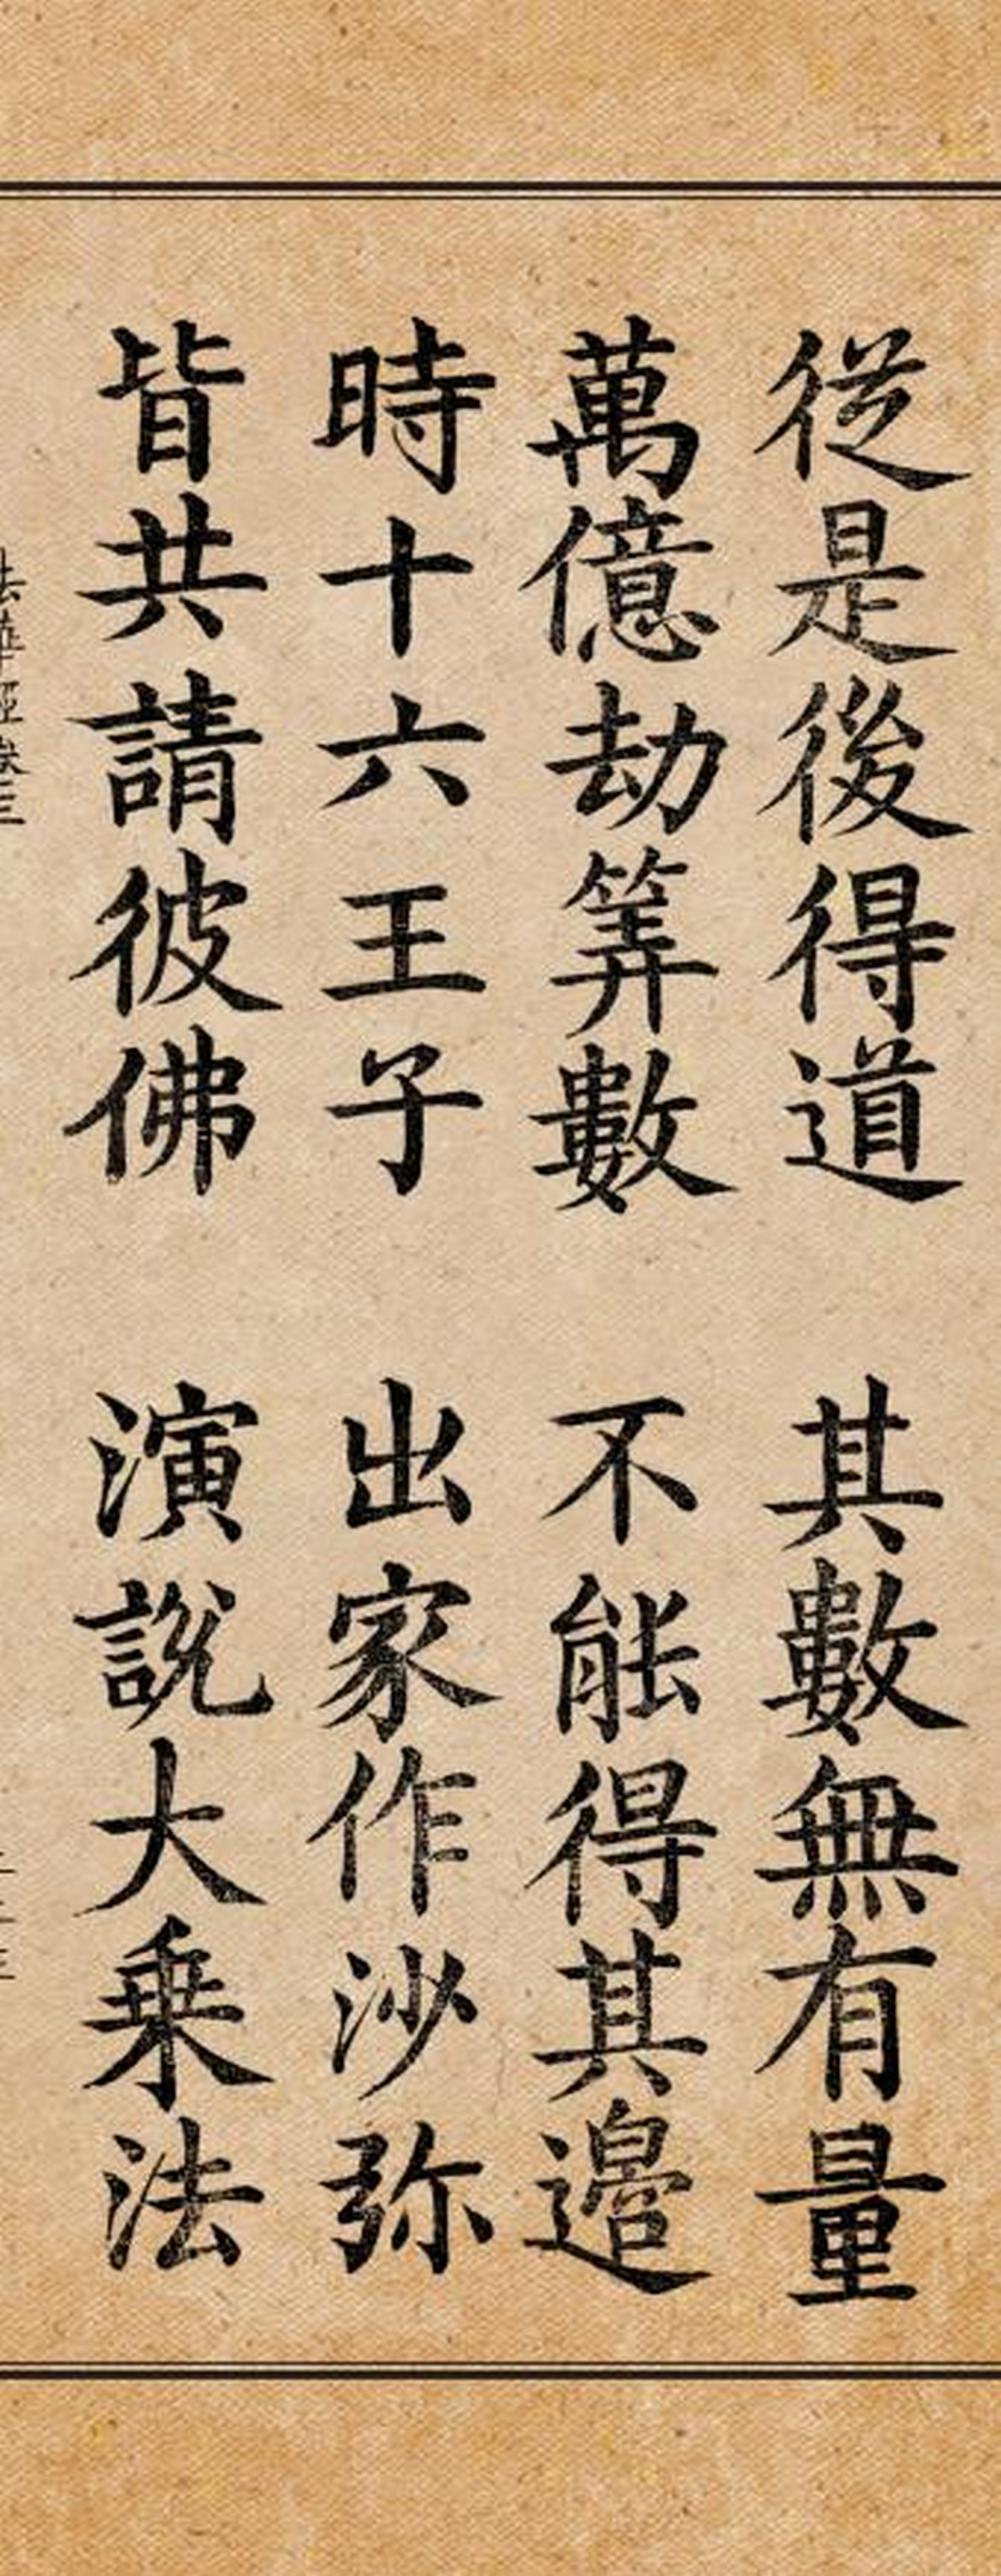 從是後得道　其數無有量
萬億劫筭數　不能得其邉
時十六王子　出家作沙弥
皆共請彼佛　演說大乗法
法華經卷三